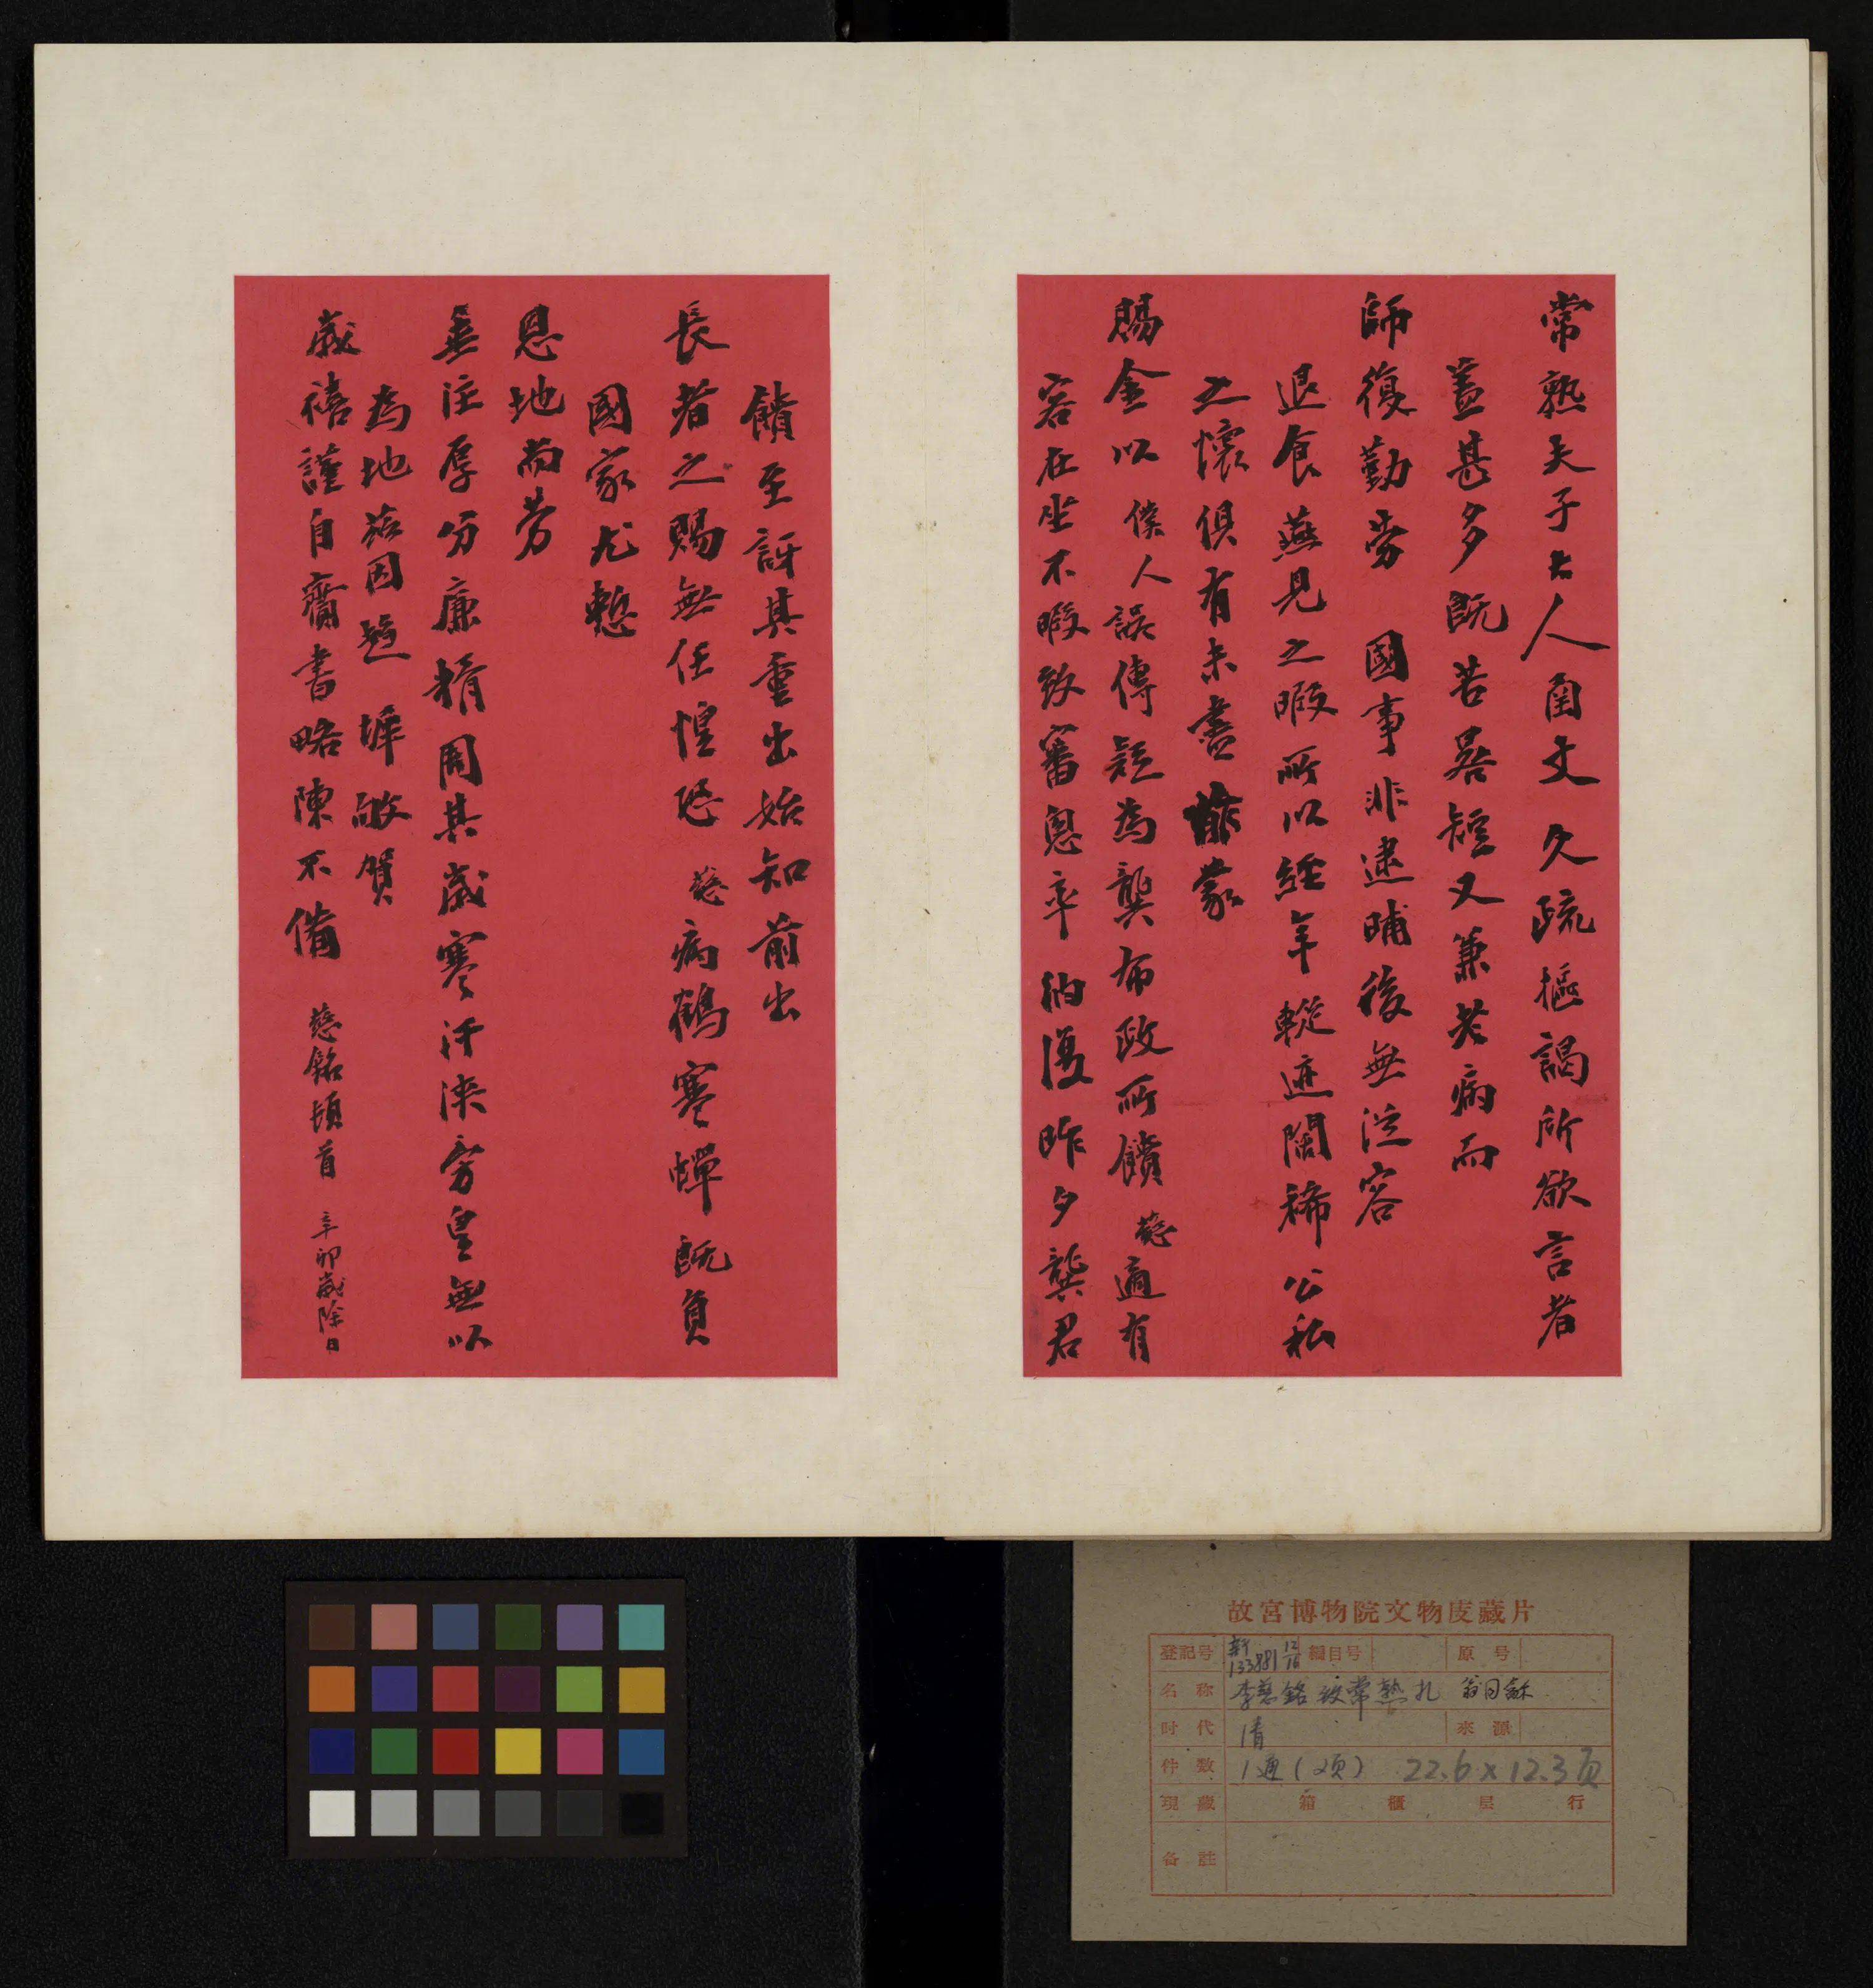 常熟夫子大人函丈久疏摳謁所欲言者
蓋甚多既苦晷短又兼老病而
師復勤勞國事非逮晡後無從容
退食燕見之暇所以經年蹤迹闊稀公私
之懷俱有未盡昨蒙
賜金以僕人誤傳疑為龔布政所饋慈適有
客在坐不暇致審悤卒納復昨夕龔君
饋至訝其重出始知前出
長者之賜無任惶恐慈病鶴寒蟬既負
國家尤慙
恩地而勞
垂注厚分廉糈周其歲寒汗浹旁皇無以
為地茲因趨墀敬賀
歲禧謹自齎書略陳不備 慈銘頓首 辛卯歲除日
故宮博物院文物庋藏片
登記号 新133881 12/16 編目号 原号
名称 李慈銘致常熟札 翁同龢
时代 清 來源
件数 1通(2页) 22.6×12.3页
現藏 箱 櫃 层 行
备註